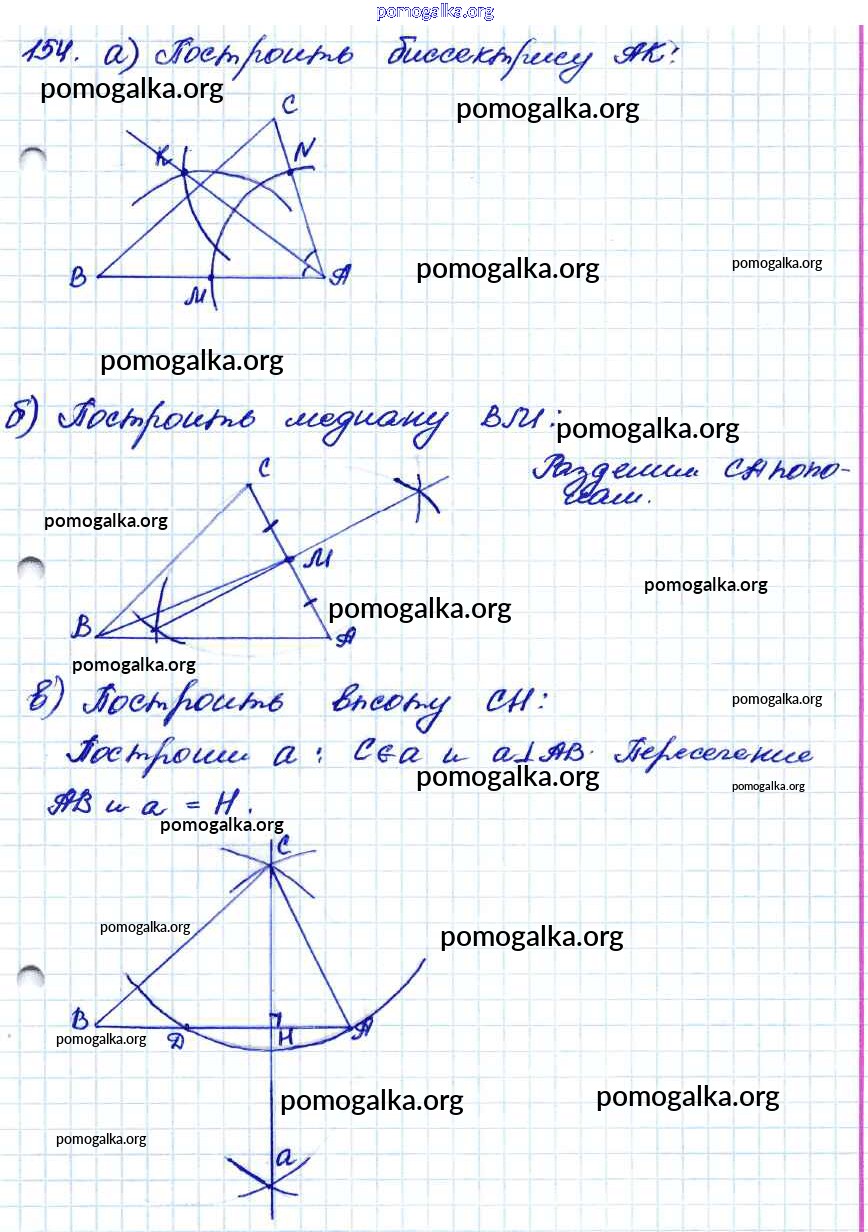 pomogalka.org
154. а) Построить биссектрису АК:
pomogalka.org pomogalka.org
C
K N
B A pomogalka.org pomogalka.org
M
pomogalka.org
б) Построить медиану ВМ:
pomogalka.org
C Разделим СА попо-
лам.
pomogalka.org
M
pomogalka.org
pomogalka.org
B A
pomogalka.org
в) Построить высоту СН:
pomogalka.org
Построим а: С∈а и а⊥АВ. Пересечение
pomogalka.org pomogalka.org
АВ и а = Н.
pomogalka.org
C
pomogalka.org pomogalka.org
B Д H A
pomogalka.org
pomogalka.org pomogalka.org
pomogalka.org
a